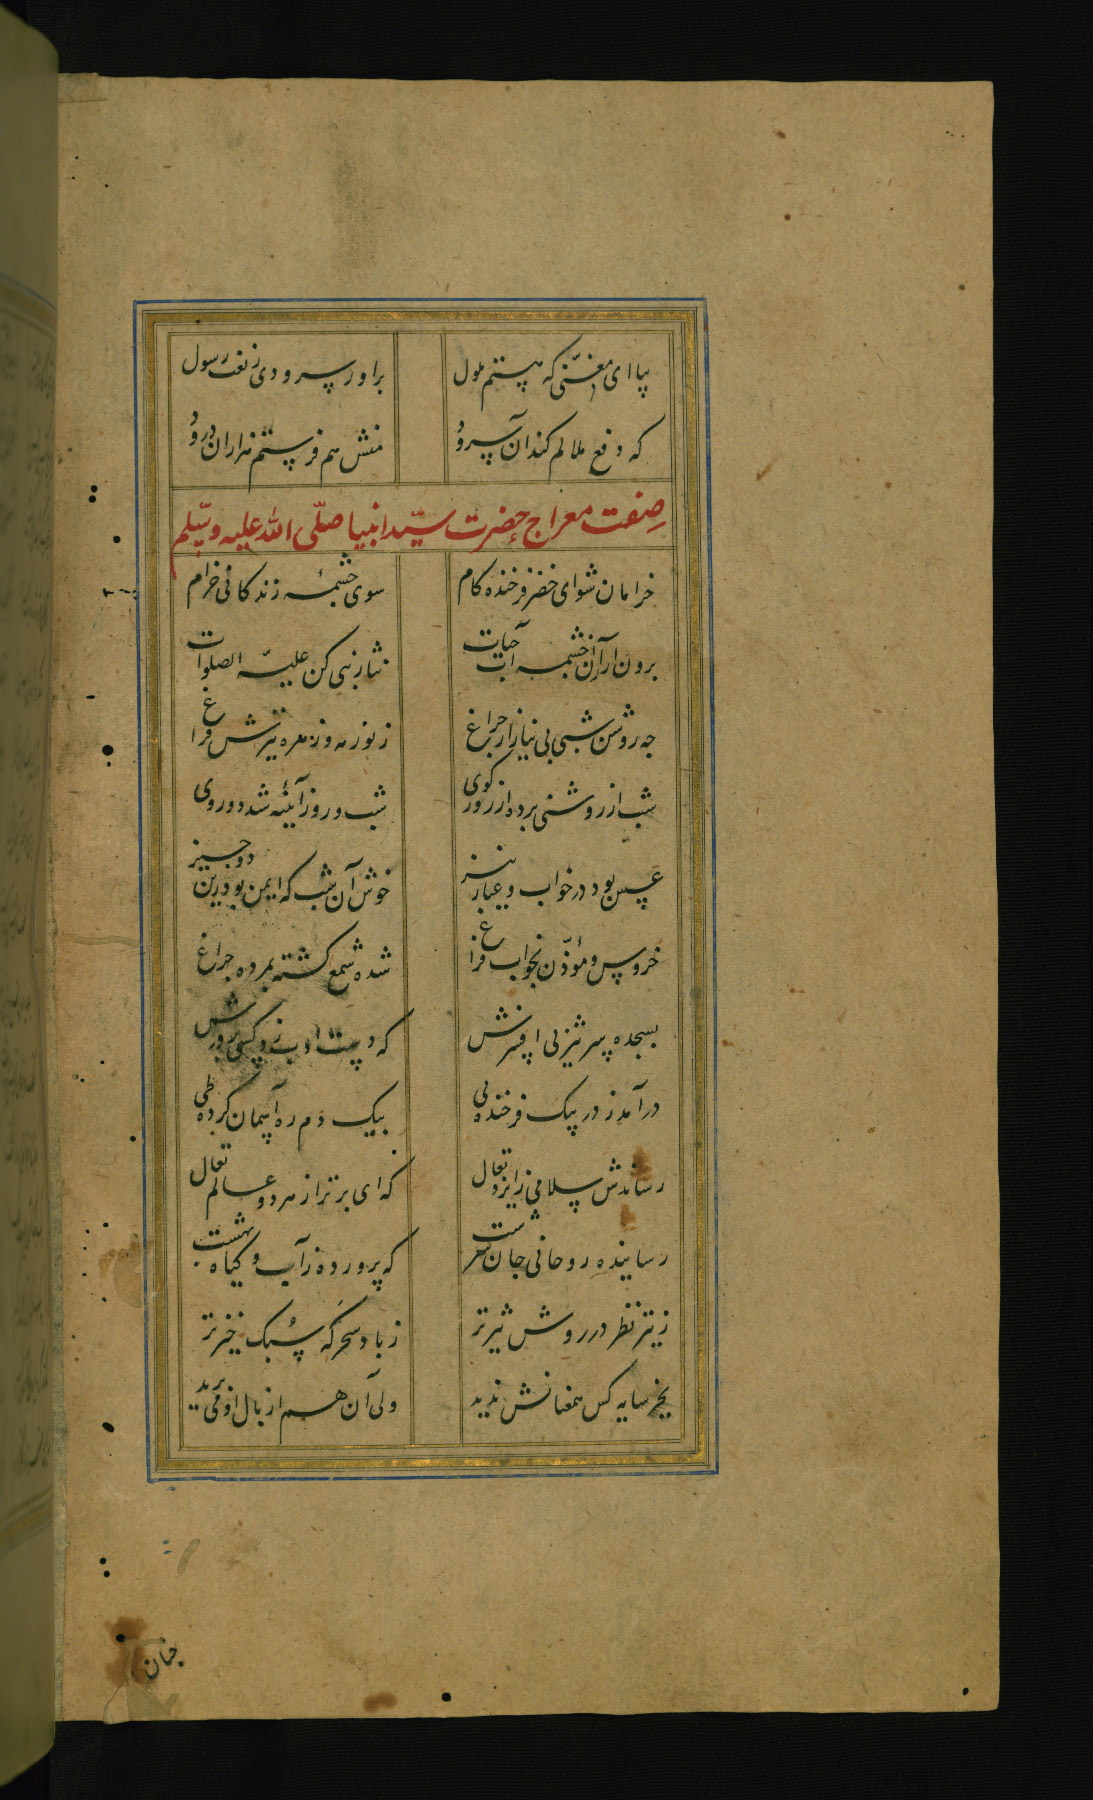 بیا ای مغنّی که هستم ملول براور سرودی ز نعت رسول
که دفع ملالم کند آن سرود منش هم فرستم هزاران درود
صفت معراج حضرت سیّد انبیا صلّی الله علیه وسلّم
خرامان شو ای خضر فرخنده کام سوی چشمهٔ زندکانی خرام
برون ار از آن چشمه آب حیات نثار نبی کن علیه الصلوات
چه روشن شبی بی نیاز از چراغ ز نور مه و زهره تیزش فراغ
شب از روشنی برده از روز کوی شب و روز آینهٔ شد دو روی
عسس بود در خواب و عیار نیز خوش آن شب که ایمن بود زین دو چیز
خروس و مؤذّن بخواب فراغ شده شمع کشته بمرده چراغ
بسجده سر نیز بی افسرش که دست ادب زد کسی بر درش
درآمد ز در پیک فرخنده پی بیک دم ره آسمان کرده طی
رساندش سلامی ز ایزد تعال که ای برتر از هر دو عالم تعال
رساینده روحانی جان سرشت که پرورده ز آب و کیاه بهشت
ز تیز نظر در روش تیزتر ز باد سحرکه سبک خیزتر
بجز سایه کس همعنانش ندید ولی آن هم از بال او می برید
چنان